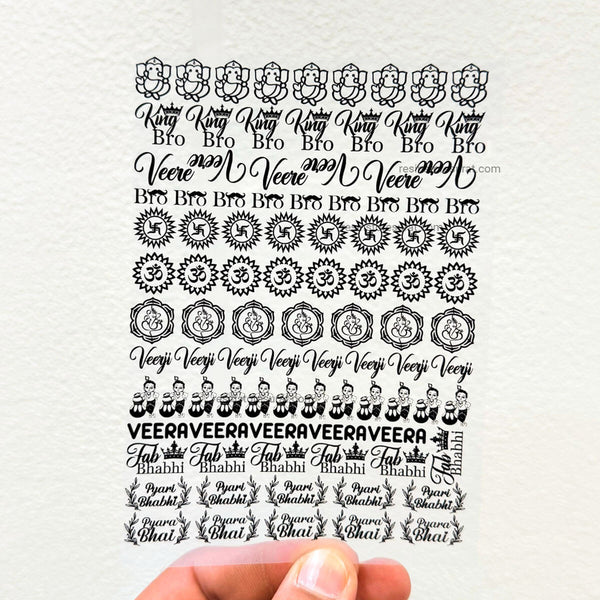 King King King King King King King
Bro Bro Bro Bro Bro Bro Bro
Veere Veere Veere Veere Veere Veere
Bro Bro Bro Bro Bro Bro Bro Bro Bro
ॐ ॐ ॐ ॐ ॐ ॐ ॐ ॐ
Veerji Veerji Veerji Veerji Veerji Veerji Veerji Veerji
VEERA VEERA VEERA VEERA VEERA
Fab Fab Fab Fab Fab
Bhabhi Bhabhi Bhabhi Bhabhi Bhabhi
Fab
Bhabhi
Pyari Pyari Pyari Pyari Pyari
Bhabhi Bhabhi Bhabhi Bhabhi Bhabhi
Pyara Pyara Pyara Pyara Pyara
Bhai Bhai Bhai Bhai Bhai